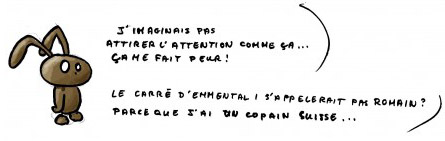 J'IMAGINAIS PAS
ATTIRER L'ATTENTION COMME ÇA...
ÇA ME FAIT PEUR!
LE CARRÉ D'EMMENTAL I S'APPELERAIT PAS ROMAIN?
PARCE QUE J'AI UN COPAIN SUISSE...